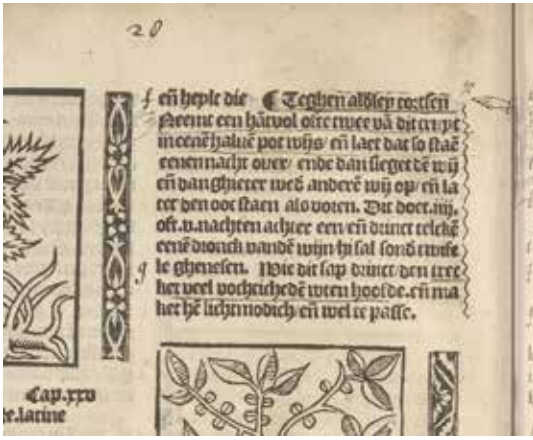 28
f eñ heyle die ¶ Teghen alḋley cortsen
Neemt een hãtvol ofte twee vã dit cruyt
in eenẽ haluẽ pot wijs/ eñ laet dat so staẽ
eenen nacht over/ ende dan sieget dẽ wij
eñ dan ghieter wed anderẽ wij op/ eñ la
tet den ooc staen als voren. Dit doet .iiij.
oft .v. nachten achter een/ eñ drinct telckẽ
eenẽ dronck vandẽ wijn/ hi sal sond twife
g le ghenesen. Wie dit sap drinct/ den trec
ket veel vochtichedẽ wten hoofde. eñ ma
ket hẽ lichtmodich/ eñ wel te passe.
Cap.xxv
te.latine